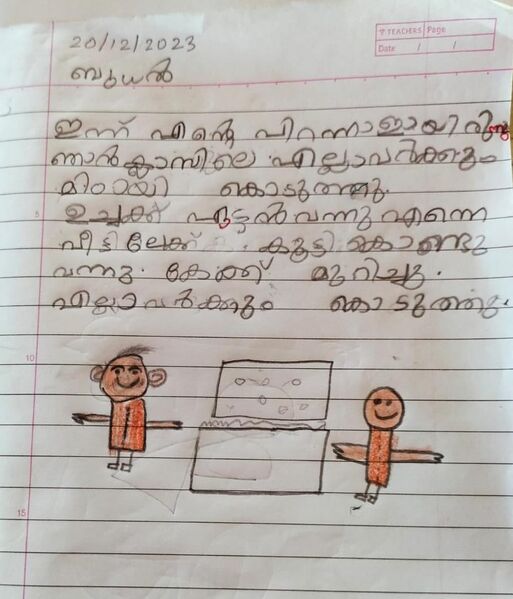 TEACHERS Page
Date / /
20/12/2023
ബുധൻ
ഇന്ന് എന്റെ പിറന്നാളായിരുന്നു
ഞാൻ ക്ലാസിലെ എല്ലാവർക്കും
മിഠായി കൊടുത്തു.
ഉച്ചക്ക് ഏട്ടൻ വന്നു എന്നെ
വീട്ടിലേക്ക് കൂട്ടി കൊണ്ടു
വന്നു. കേക്ക് മുറിച്ചു.
എല്ലാവർക്കും കൊടുത്തു.
5
10
15